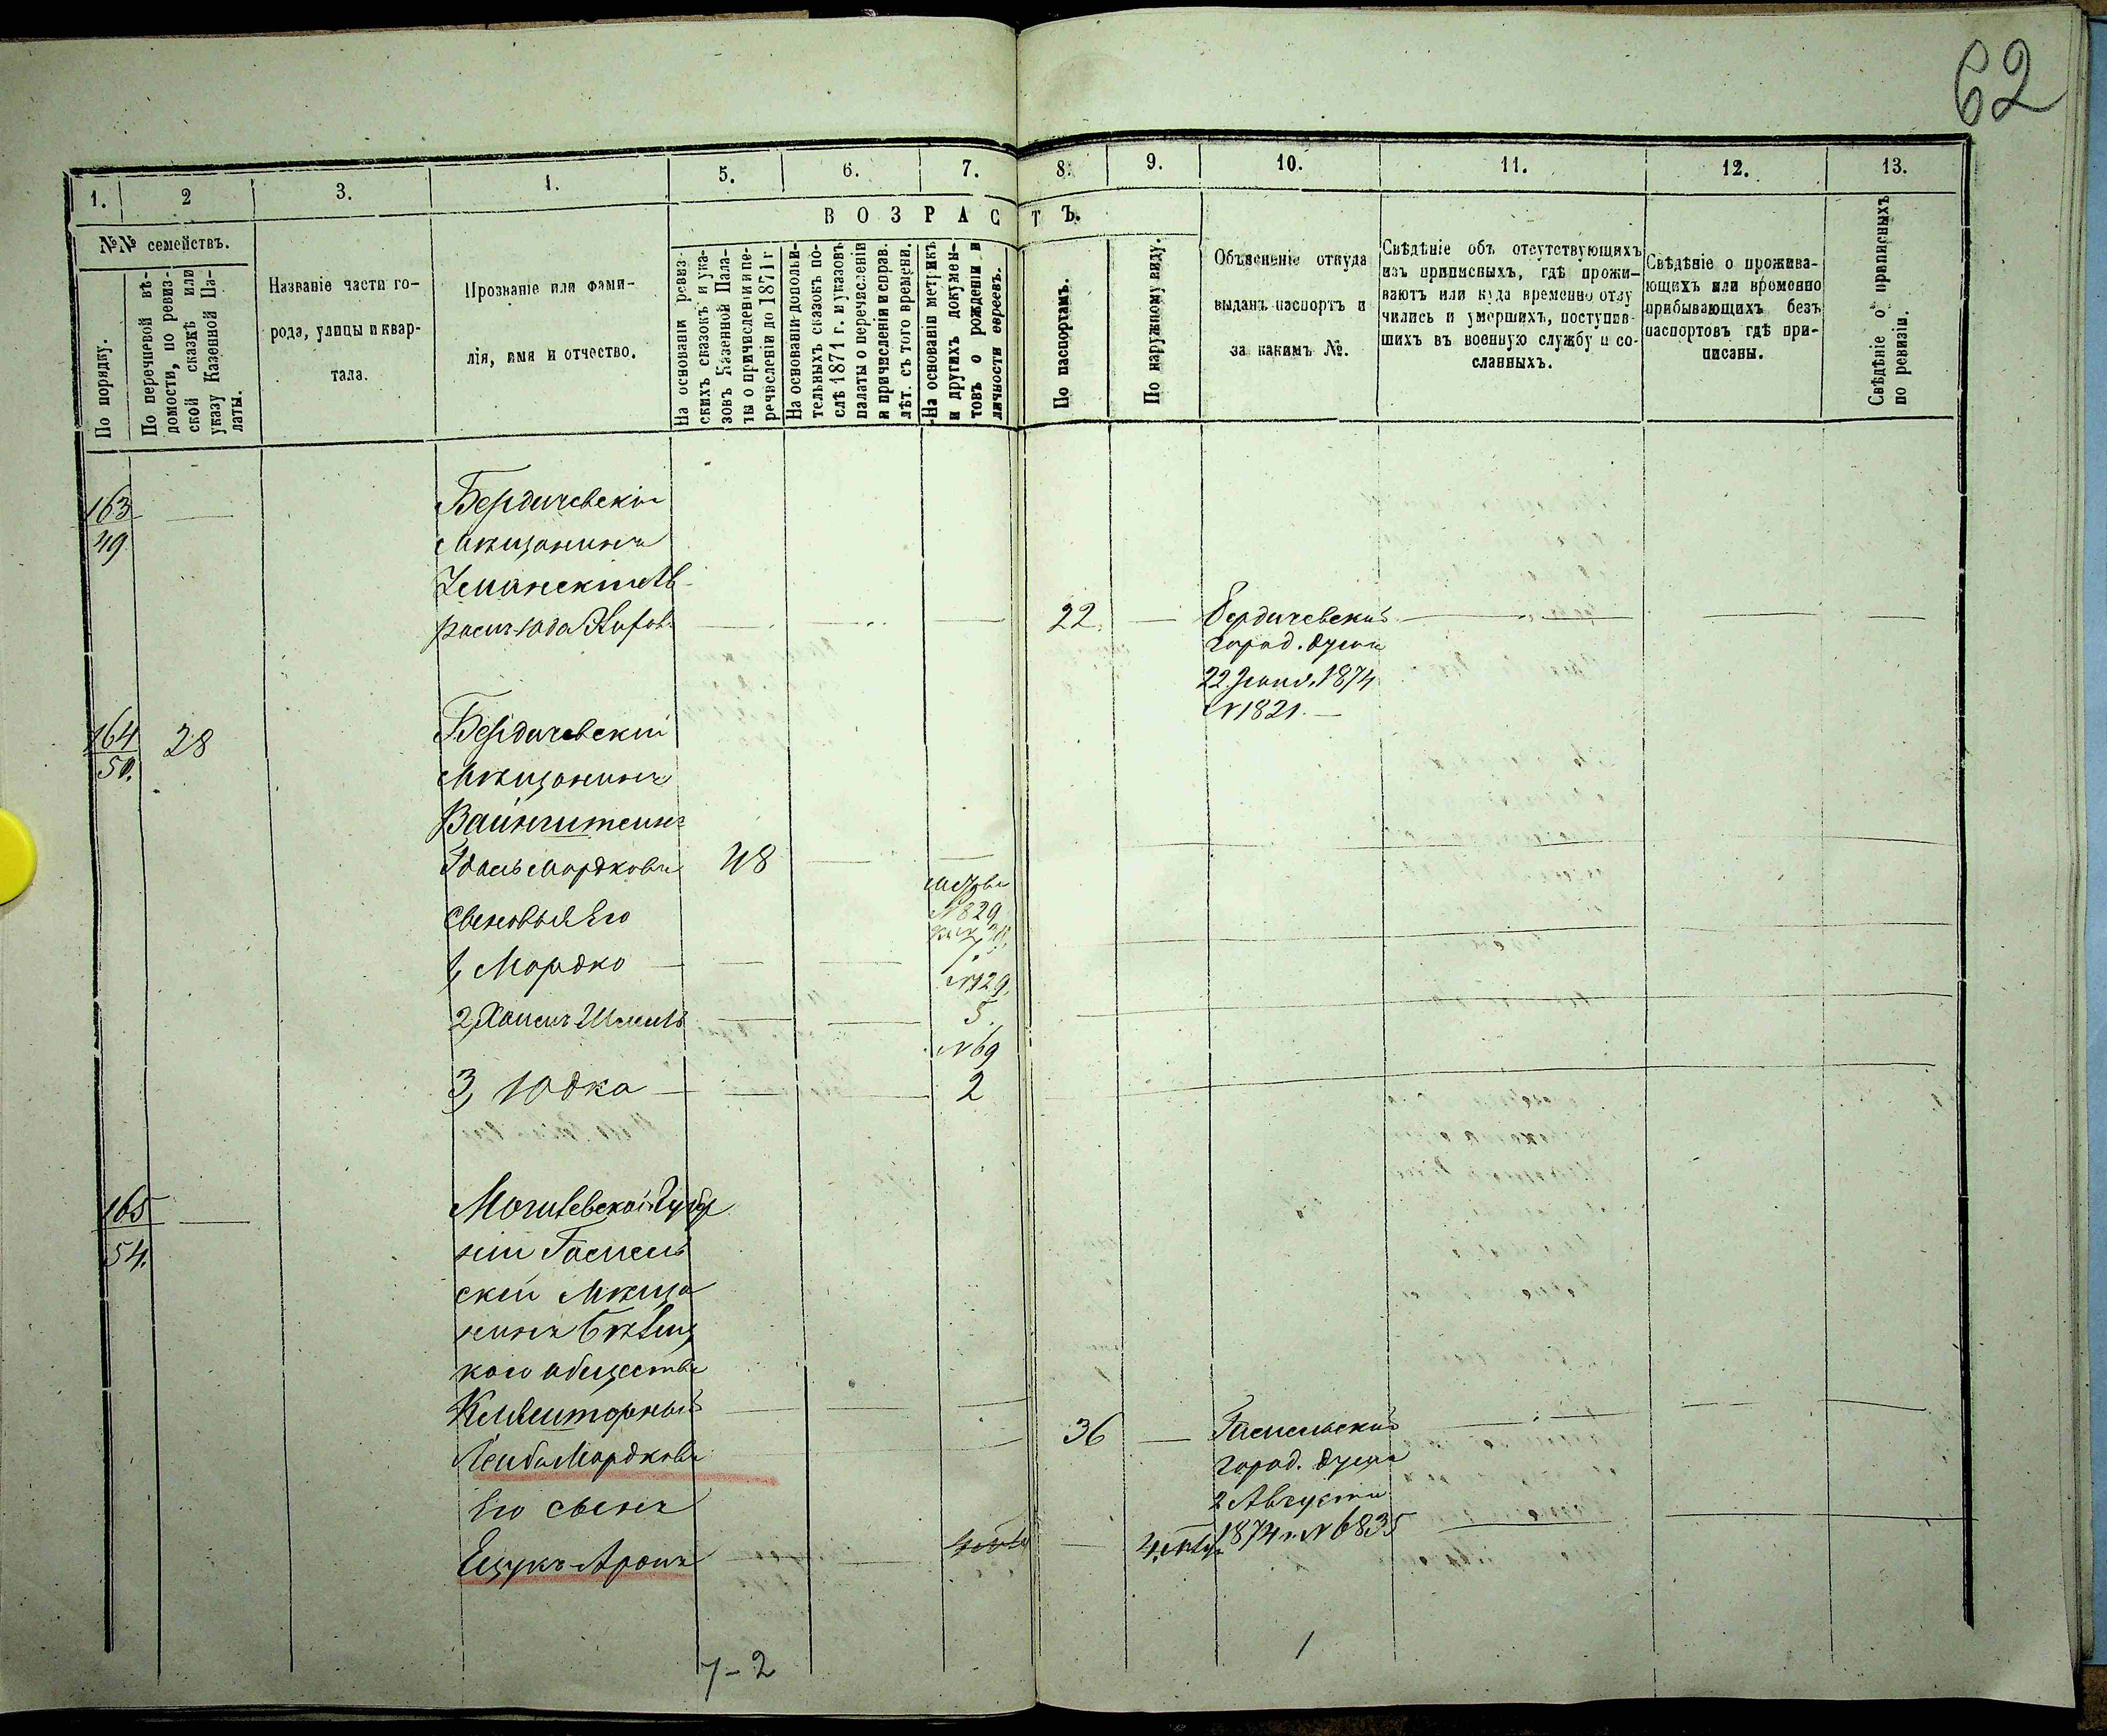 62
1. 2 3. 4. 5. 6. 7. 8. 9. 10. 11. 12. 13.
№№ семействъ.
По порядку.
По перечневой вѣ-
домости, по ревиз-
ской сказкѣ или
указу Казенной Па-
латы.
Названіе части го-
рода, улицы и квар-
тала.
Прозваніе или фами-
лія, имя и отчество.
ВОЗРАСТЪ.
На основаніи ревиз-
скихъ сказокъ и ука-
зовъ Казенной Пала-
ты о причисленіи и пе-
речисленіи до 1871 г
На основаніи дополни-
тельныхъ сказокъ по-
слѣ 1871 г. и указовъ
палаты о перечисленіи
и причисленіи исправ.
лѣт. съ того времени.
На основаніи метрикъ
и другихъ докумен-
товъ о рожденіи и
личности евреевъ.
По паспортамъ.
По наружному виду.
Объясненіе откуда
выданъ паспортъ и
за какимъ №.
Свѣдѣніе объ отсутствующихъ
изъ приписныхъ, гдѣ прожи-
ваютъ или куда временно отлу
чились и умершихъ, поступив-
шихъ въ военную службу и со-
сланныхъ.
Свѣдѣніе о прожива-
ющихъ или временно
прибывающихъ безъ
паспортовъ гдѣ при-
писаны.
Свѣдѣніе о приписныхъ
по ревизіи.
163
49
Бердичевскій
Мѣщанинъ
Уманскій Аб-
рамъ-Юда
22.
Бердичевской
город. думы
22 Іюня 1874
№ 1821.
164
50.
28
Бердичевскій
Мѣщанинъ
Вайнштейнъ
Идель Мордковъ 48
Сыновья Его
№ 829
1, Мордко 7.
№ 129.
2, Хаимъ Шмиль 5.
№ 69
3, Юдка 2
165
54.
Могилевской Губер
ніи Гомель
скій Мѣща
нинъ Бѣлиц
каго общества
Клейторный
Лейба Мордковъ
36
Гомельской
город. думы
2 Августа
1874 г. № 6835
Его сынъ
Ицукъ-Аронъ
7-2
1